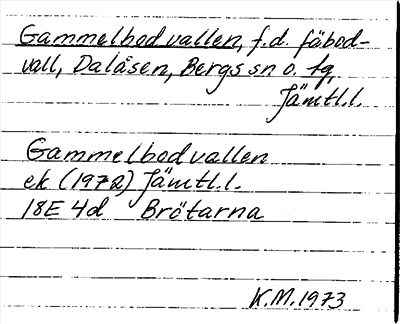 Gammelbodvallen, f.d. fäbod-
vall, Dalåsen, Bergs sn o. tg,
Jämtl.l.
Gammelbodvallen
ek (1972) Jämtl.l.
18E 4d Brötarna
K.M.1973